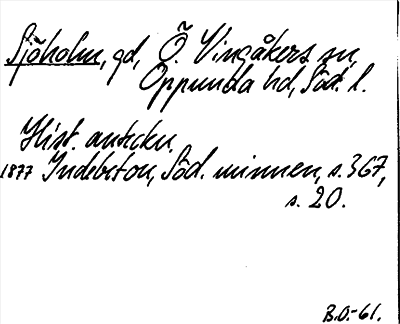 Sjöholm, gd, Ö. Vingåkers sn,
Oppunda hd, Söd. l.
Hist. anteckn.
1877 Indebetou, Söd. minnen, s. 367,
s. 20.
B.O.-61.